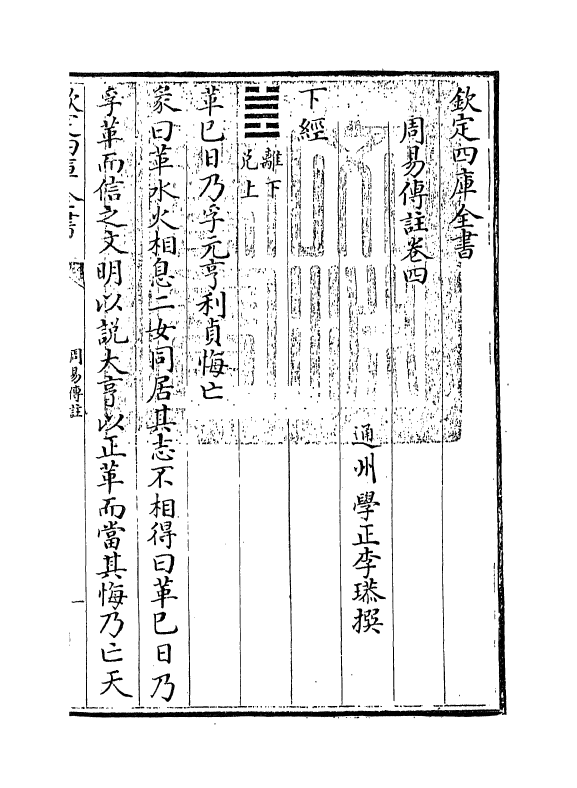 欽定四庫全書
周易傳註卷四
通州學正李塨撰
下經
䷰離下兌上
革巳日乃孚元亨利貞悔亡
彖曰革水火相息二女同居其志不相得曰革巳日乃
孚革而信之文明以說大亨以正革而當其悔乃亡天
欽定四庫全書
周易傳註
一